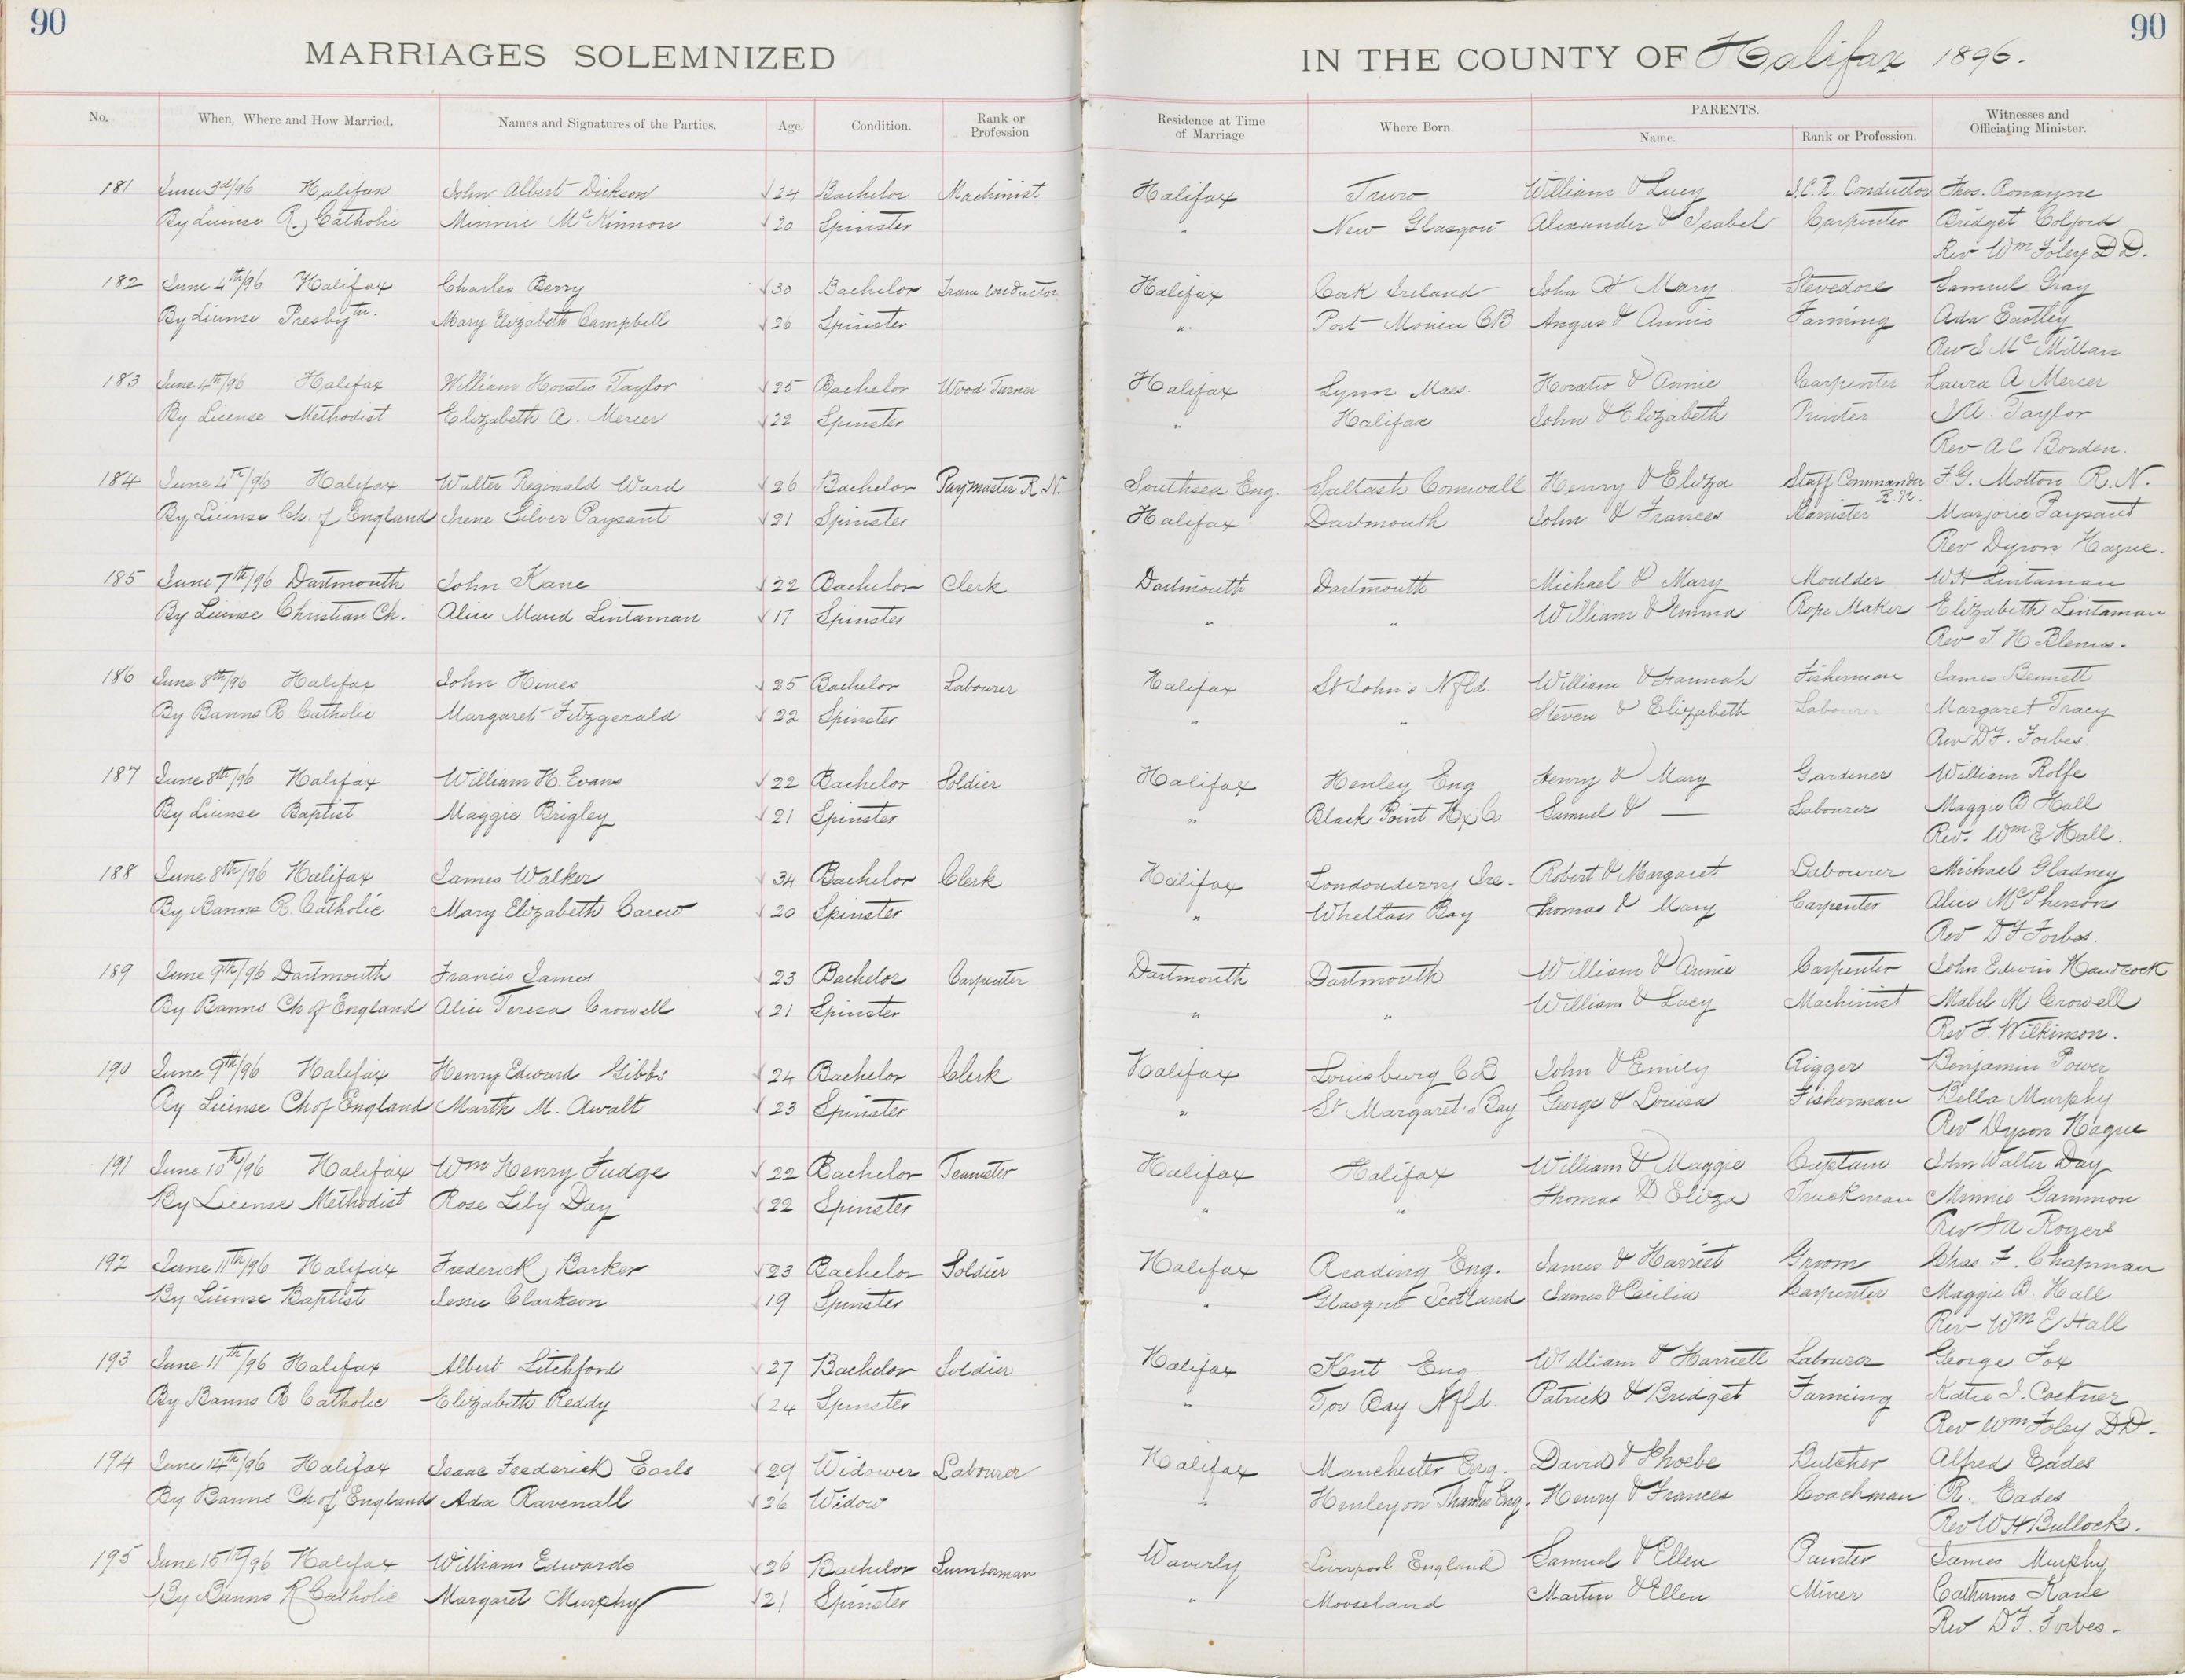 90
MARRIAGES SOLEMNIZED
IN THE COUNTY OF Halifax 1896.
90
No. When, Where and How Married. Names and Signatures of the Parties. Age. Condition. Rank or Profession Residence at Time of Marriage Where Born. PARENTS. Name. Rank or Profession. Witnesses and Officiating Minister.
181 June 3rd/96 Halifax John Albert Dickson 24 Bachelor Machinist Halifax Truro William & Lucy I.C.R. Conductor Thos. Ronayne
By License R. Catholic Minnie McKinnon 20 Spinster " New Glasgow Alexander & Isabel Carpenter Bridget Colford
Rev Wm Foley DD.
182 June 4th/96 Halifax Charles Berry 30 Bachelor Tram Conductor Halifax Cork Ireland John & Mary Stevedore Samuel Gray
By License Presbytn. Mary Elizabeth Campbell 26 Spinster " Port Morien CB Angus & Annie Farming Ada Eastley
Rev J McMillan
183 June 4th/96 Halifax William Horatio Taylor 25 Bachelor Wood Turner Halifax Lynn Mass. Horatio & Annie Carpenter Laura A Mercer
By License Methodist Elizabeth A. Mercer 22 Spinster " Halifax John & Elizabeth Printer J.A. Taylor
Rev A C Borden.
184 June 4th/96 Halifax Walter Reginald Ward 26 Bachelor Paymaster R.N. Southsea Eng. Saltash Cornwall Henry & Eliza Staff Commander R.N. F.G. Motton R.N.
By License Ch. of England Irene Silver Paysant 21 Spinster Halifax Dartmouth John & Frances Barrister Marjorie Paysant
Rev Dyson Hague.
185 June 7th/96 Dartmouth John Kane 22 Bachelor Clerk Dartmouth Dartmouth Michael & Mary Moulder W H Lintaman
By License Christian Ch. Alice Maud Lintaman 17 Spinster " " William & Emma Rope Maker Elizabeth Lintaman
Rev T H Blenus.
186 June 8th/96 Halifax John Hines 25 Bachelor Labourer Halifax St John's Nfld William & Hannah Fisherman James Bennett
By Banns R. Catholic Margaret Fitzgerald 22 Spinster " " Steven & Elizabeth Labourer Margaret Tracy
Rev D F. Forbes
187 June 8th/96 Halifax William H. Evans 22 Bachelor Soldier Halifax Henley Eng Henry & Mary Gardiner William Rolfe
By License Baptist Maggie Brigley 21 Spinster " Black Point Hx Co Samuel & — Labourer Maggie B Hall
Rev. Wm E Hall.
188 June 8th/96 Halifax James Walker 34 Bachelor Clerk Halifax Londonderry Ire. Robert & Margaret Labourer Michael Gladney
By Banns R. Catholic Mary Elizabeth Carew 20 Spinster " Bay Thomas & Mary Carpenter Alice McPherson
Rev D F Forbes.
189 June 9th/96 Dartmouth Francis James 23 Bachelor Carpenter Dartmouth Dartmouth William & Annie Carpenter John Edwin Handcock
By Banns Ch of England Alice Teresa Crowell 21 Spinster " " William & Lucy Machinist Mabel M Crowell
Rev F. Wilkinson.
190 June 9th/96 Halifax Henry Edward Gibbs 24 Bachelor Clerk Halifax Louisburg CB John & Emily Rigger Benjamin Power
By License Ch of England Marth M. Awalt 23 Spinster " St Margaret's Bay George & Louisa Fisherman Bella Murphy
Rev Dyson Hague
191 June 10th/96 Halifax Wm Henry Fudge 22 Bachelor Teamster Halifax Halifax William & Maggie Captain John Walter Day
By License Methodist Rose Lily Day 22 Spinster " " Thomas & Eliza Truckman Minnie Gammon
Rev J A Rogers
192 June 11th/96 Halifax Frederick Barker 23 Bachelor Soldier Halifax Reading Eng. James & Harriet Groom Chas F. Chapman
By License Baptist Jessie Clarkson 19 Spinster " Glasgow Scotland James & Cecilia Carpenter Maggie B. Hall
Rev Wm E Hall
193 June 11th/96 Halifax Albert Litchford 27 Bachelor Soldier Halifax Kent Eng William & Harriett Labourer George Fox
By Banns R Catholic Elizabeth Reddy 24 Spinster " Tor Bay Nfld. Patrick & Bridget Farming Katie J.
Rev Wm Foley DD.
194 June 14th/96 Halifax Isaac Frederick Earls 29 Widower Labourer Halifax Manchester Eng. David & Phoebe Butcher Alfred Eades
By Banns Ch of England Ada Ravenall 26 Widow " Henley on Thames Eng. Henry & Frances Coachman R. Eades
Rev W H Bullock.
195 June 15th/96 Halifax William Edwards 26 Bachelor Lumberman Waverly Liverpool England Samuel & Ellen Painter James Murphy
By Banns R Catholic Margaret Murphy 21 Spinster " Mooseland Martin & Ellen Miner Catherine Kane
Rev D F. Forbes.